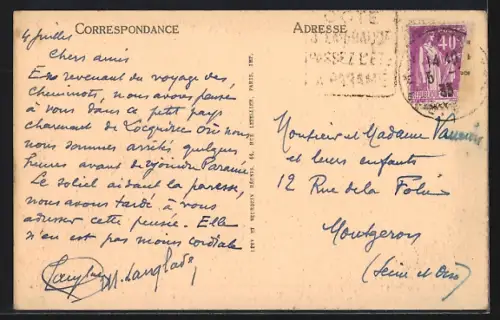 CORRESPONDANCE
4 juillet
Chers amis
En revenant du voyage des
cheminots, nous avons pensé
à vous dans ce petit pays
charmant de Locquirec où nous
nous sommes arrêtés quelques
heures avant de rejoindre Paramé
Le soleil aidant la paresse,
nous avons tardé à vous
adresser cette pensée. Elle
n'en est pas moins cordiale
M. Langlade
LEVY ET NEURDEIN RÉUNIS, 44, RUE LETELLIER, PARIS, IMP.
ADRESSE
COTE
D'EMERAUDE
PASSEZ L'ETE
A PARAME
40
35
Monsieur et Madame
et leurs enfants
12 Rue de la Folie
Montgeron
(Seine et Oise)